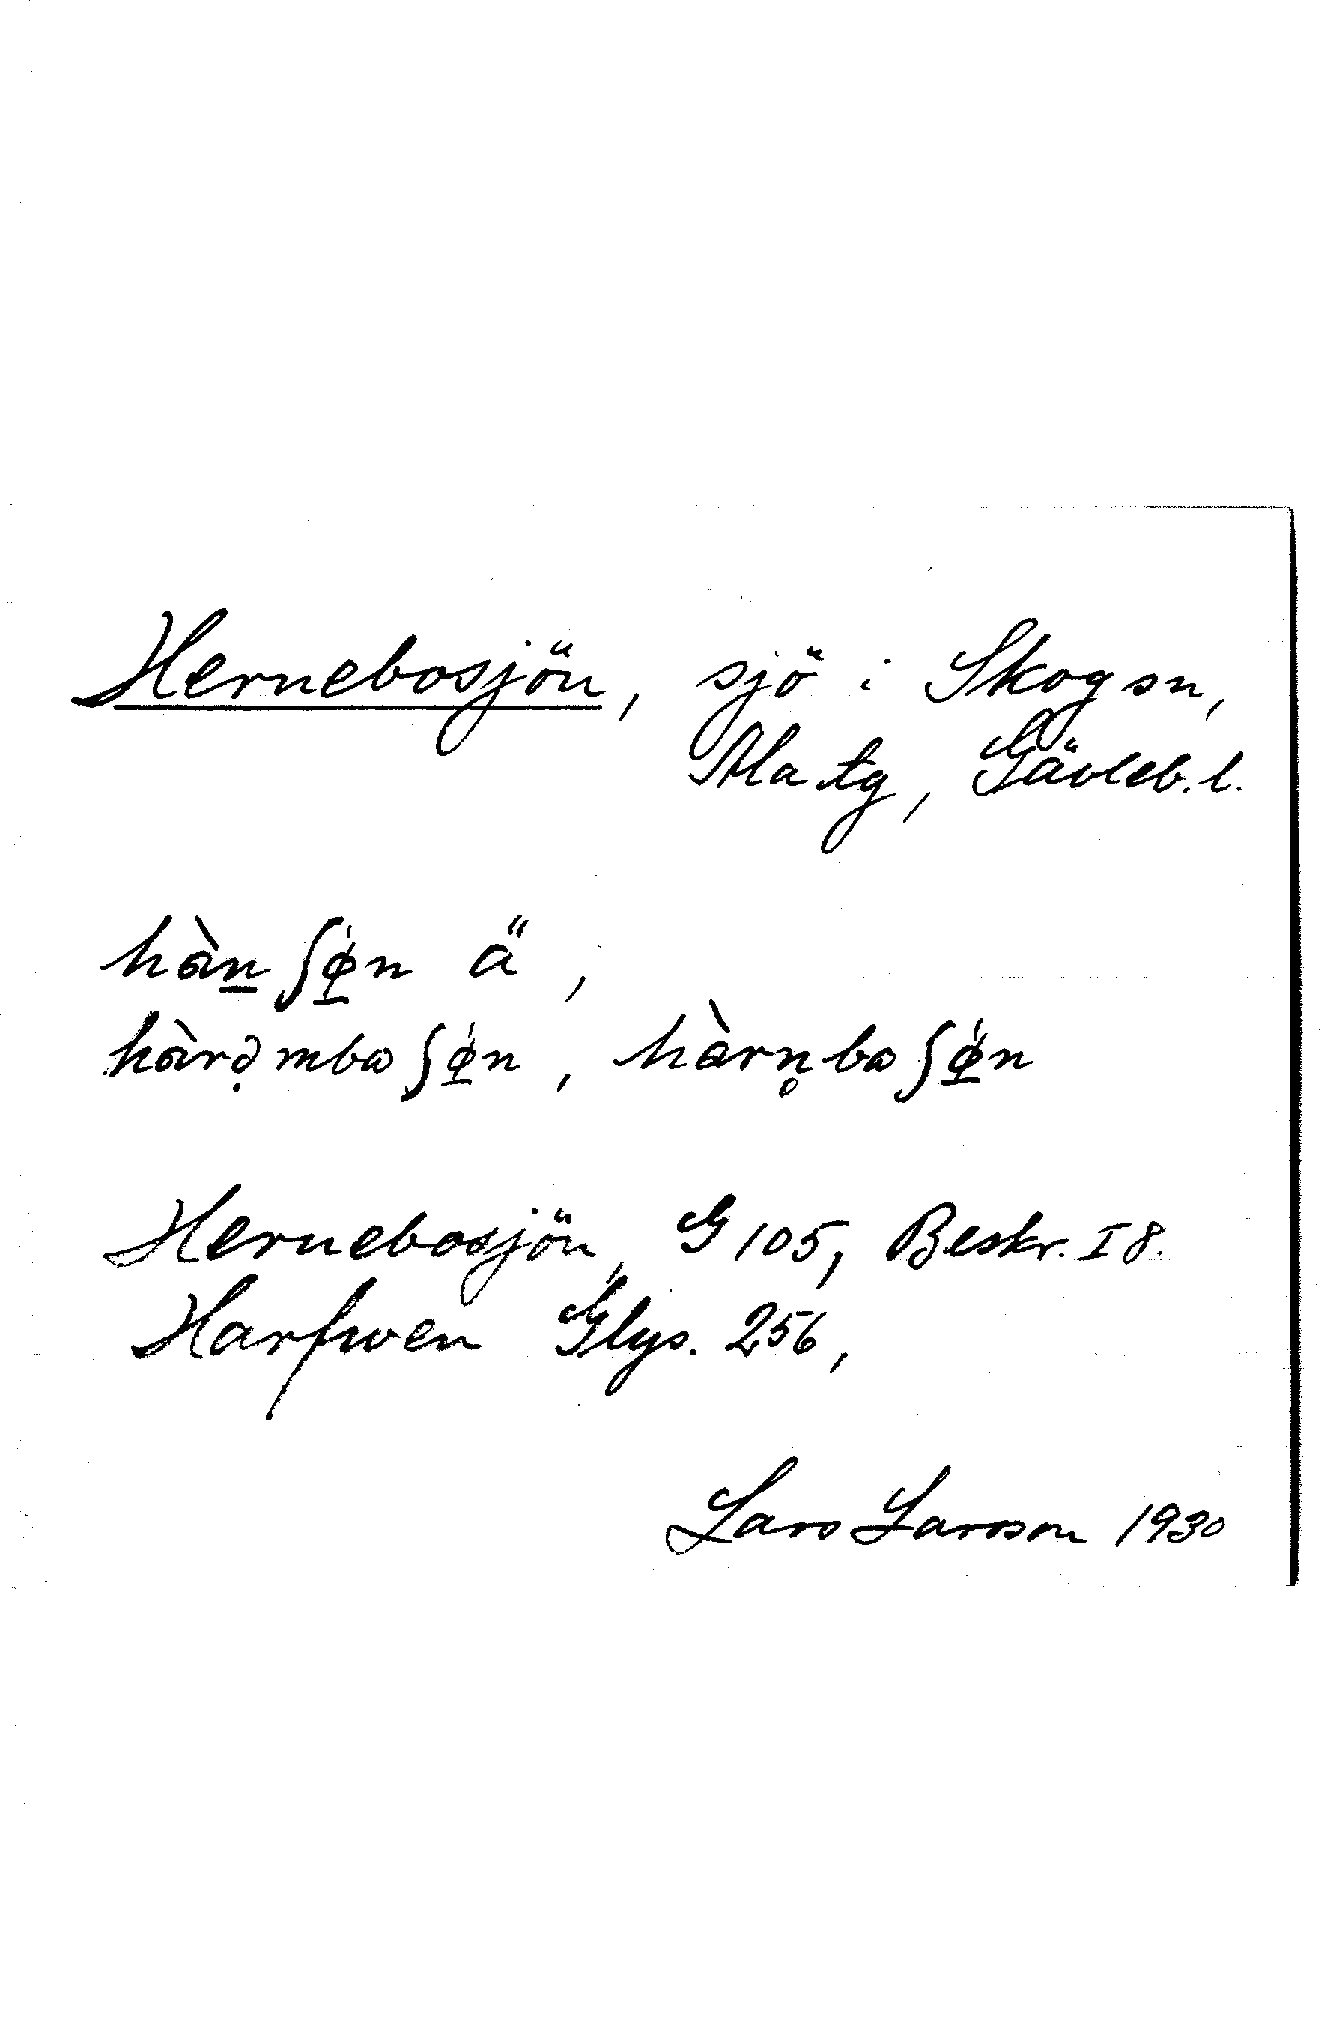 Hernebosjön, sjö i Skog sn,
Ala tg, Gävleb. l.
hàn̲ ʃǿ̲n ä,
hàrə̣mbω ʃǿ̲n, hàrn̥bω ʃǿ̲n
Hernebosjön, G 105, Beskr. I 8.
Harfwen Glys. 256,
Lars Larsson 1930